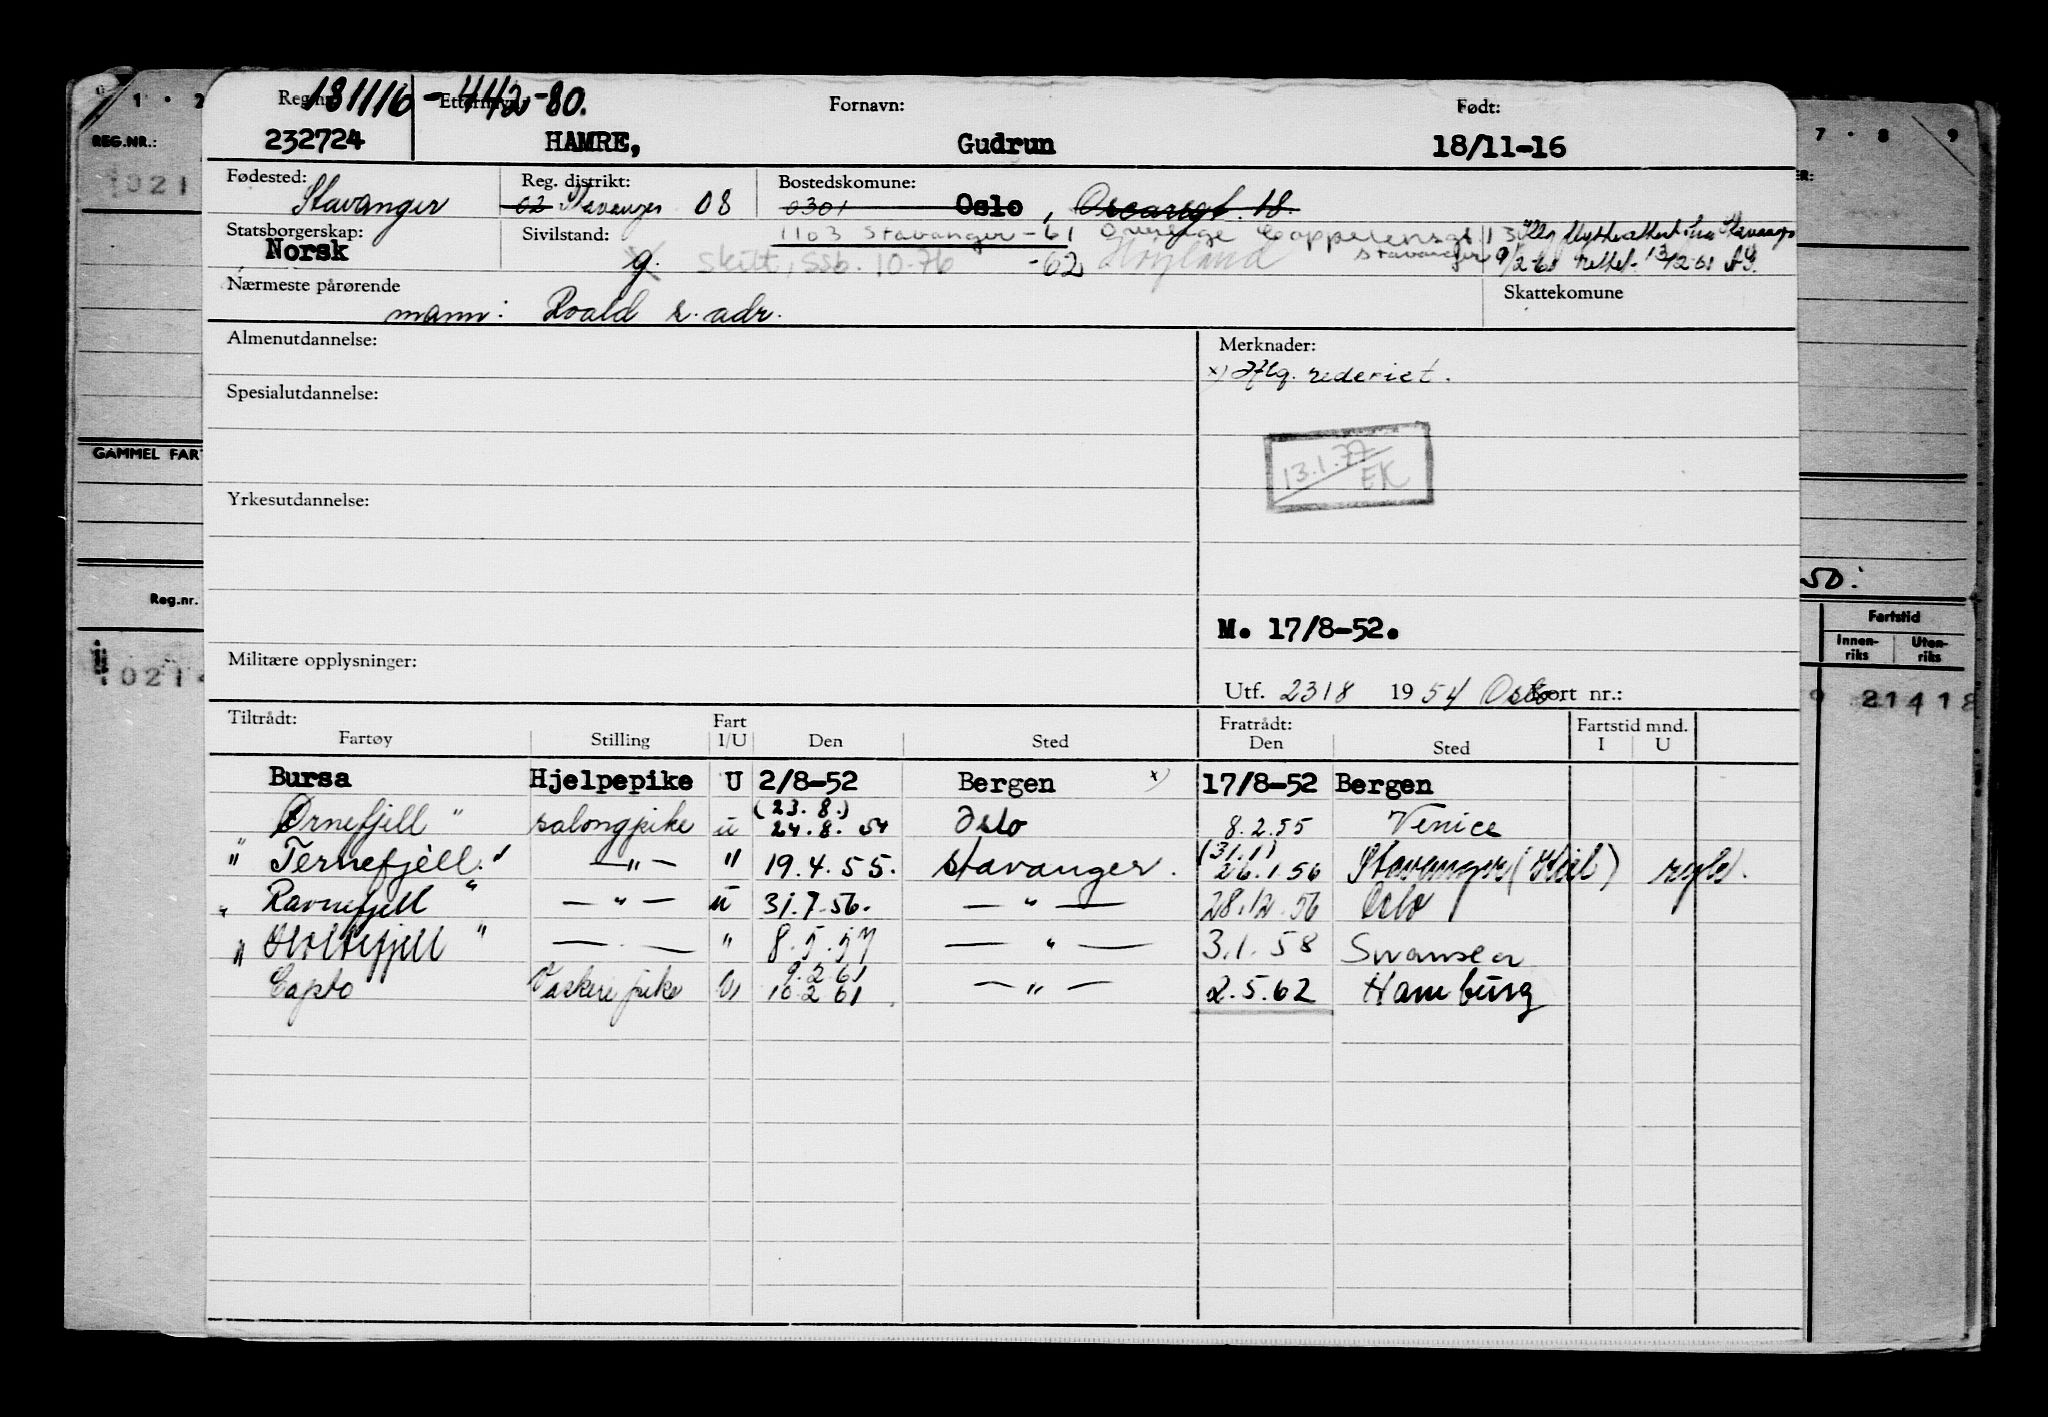 Reg.nr. Etternavn: 181116-442-80. Fornavn: Født:
232724 HAMRE, Gudrun 18/11-16
Fødested: Stavanger Reg. distrikt: 02 Stavanger 08 Bostedskomune: 0301 Oslo, Oscarsgt. 18.
Statsborgerskap: Norsk Sivilstand: g. 1103 Stavanger -61
skilt, SSb. 10-76 -62 Høyland Stavanger 9/2-61 13/12-61
Nærmeste pårørende Skattekomune
mann: Roald s. adr.
Almenutdannelse: Merknader:
x) iflg. rederiet.
Spesialutdannelse:
13.1.77
EK
Yrkesutdannelse:
M. 17/8-52.
Militære opplysninger:
Utf. 2318 1954 Oslo Kort nr.:
Tiltrådt: Fart Fratrådt: Fartstid mnd.
Fartøy Stilling I/U Den Sted Den Sted I U
Bursa Hjelpepike U 2/8-52 Bergen x) 17/8-52 Bergen
Ørnefjell " salongpike u (23.8.) 24.8.54 Oslo 8.2.55 Venice
" Ternefjell " — " — " 19.4.55. Stavanger. (31.1) 26.1.56 Stavanger (Kiel)
" Ravnefjell " — " — u 31.7.56. — " — 28.12.56 Oslo
" Holtefjell " — " — " 8.5.57 — " — 3.1.58 Swansea
Capto Vaskeripike U 9.2.61 10.2.61 — " — 2.5.62 Hamburg
1 · 2
REG.NR.:
021
GAMMEL FART
Reg.nr.
0214
7 · 8 9
50.
Fartstid
Innen-riks Uten-riks
9 21418